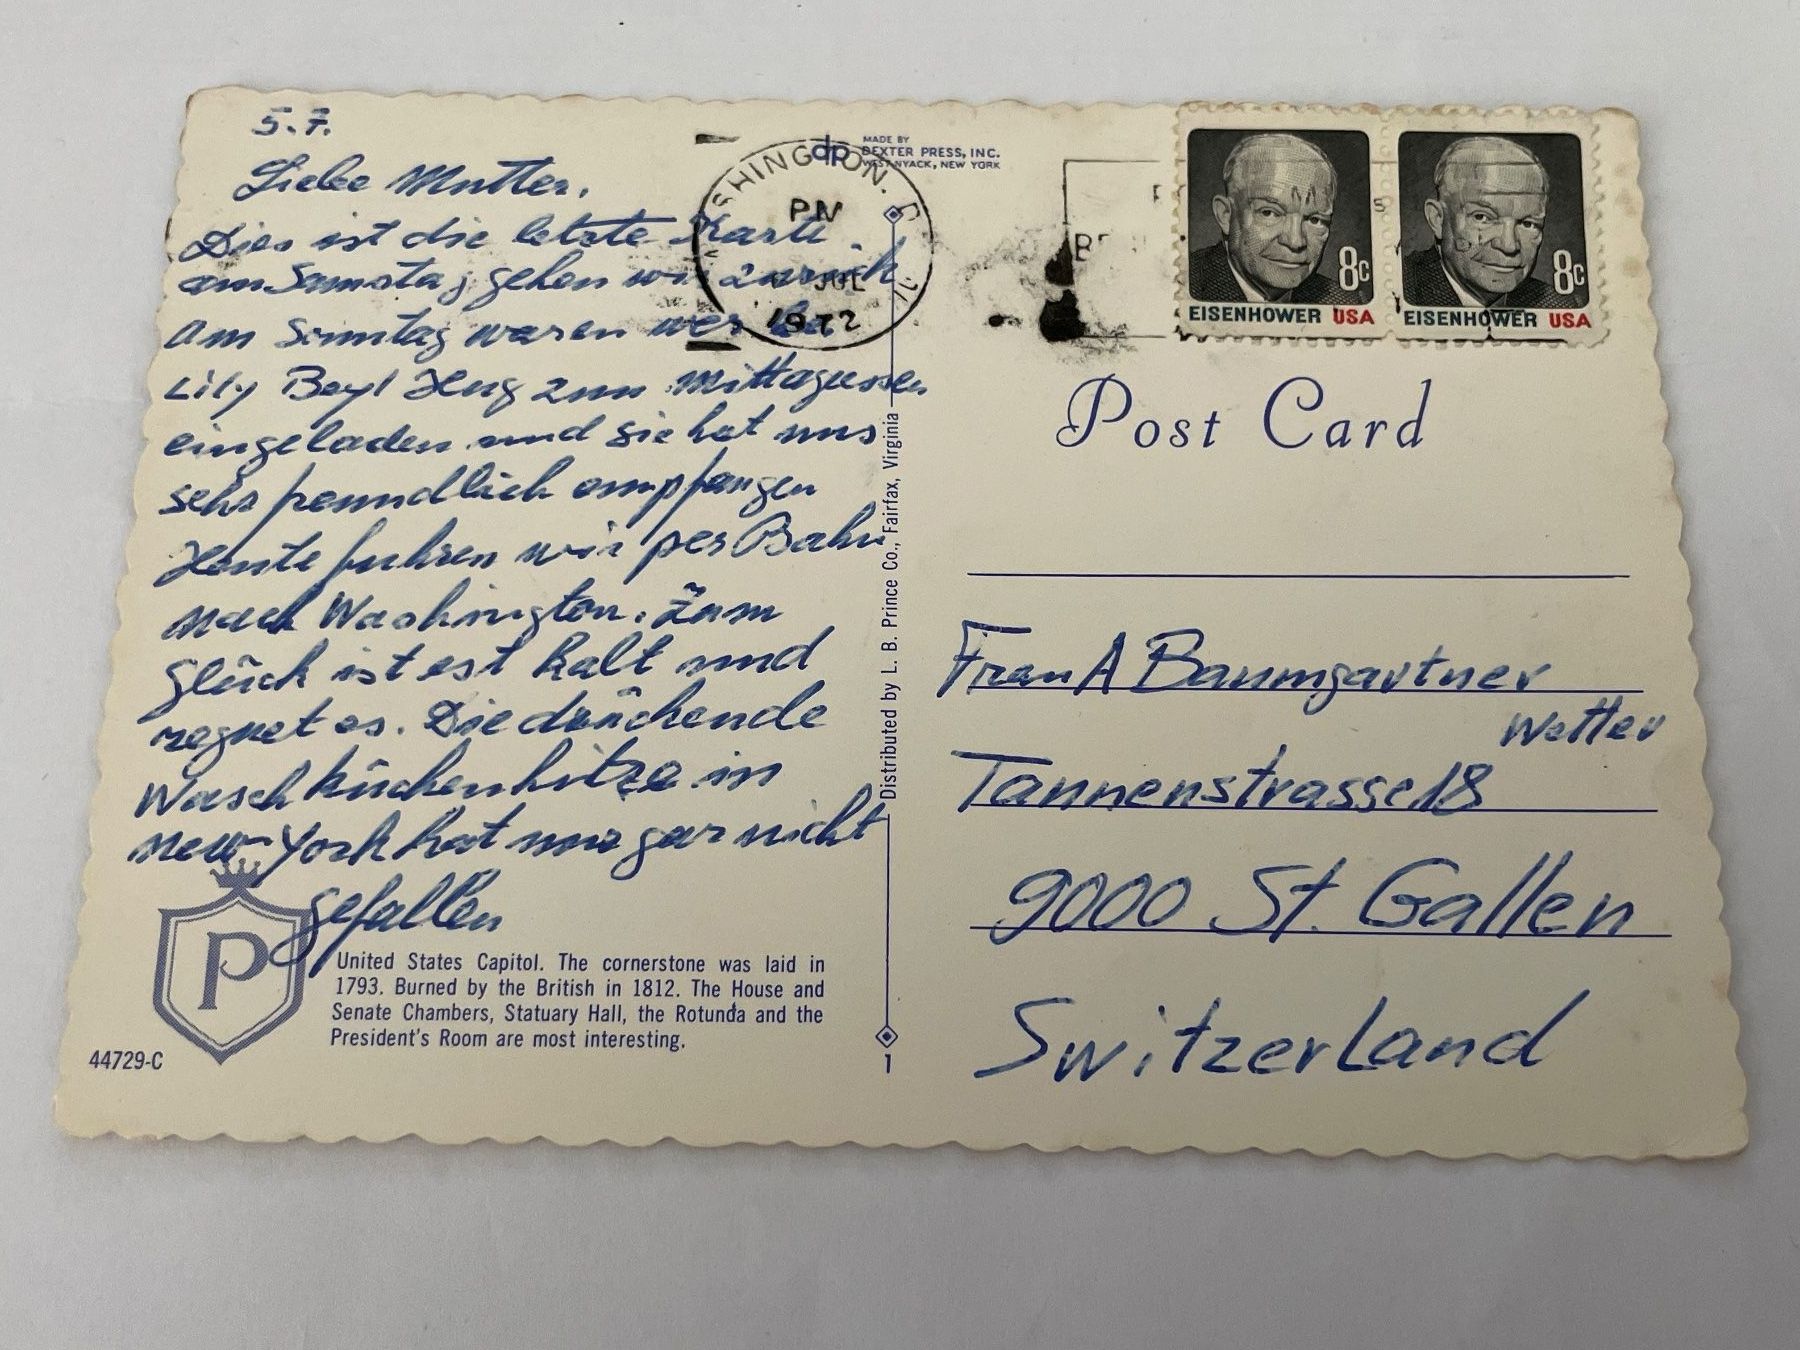 5.7.
Liebe Mutter.
Dies ist die letzte Karte.
am Samstag gehen wir zurück
Am Sonntag waren wir bei
Lily Beyl Hug zum Mittagessen
eingeladen und sie hat uns
sehr freundlich empfangen
Heute fuhren wir per Bahn
nach Washington. Zum
Glück ist est kalt und
regnet es. Die drückende
Waschküchenhitze in
New-York hat uns gar nicht
gefallen
P
United States Capitol. The cornerstone was laid in
1793. Burned by the British in 1812. The House and
Senate Chambers, Statuary Hall, the Rotunda and the
President's Room are most interesting.
44729-C
1
dp
MADE BY
DEXTER PRESS, INC.
WEST NYACK, NEW YORK
WASHINGTON, D.C.
PM
JUL
1972
Distributed by L. B. Prince Co., Fairfax, Virginia
8c
EISENHOWER USA
8c
EISENHOWER USA
Post Card
Frau A Baumgartner
Wetter
Tannenstrasse 18
9000 St. Gallen
Switzerland